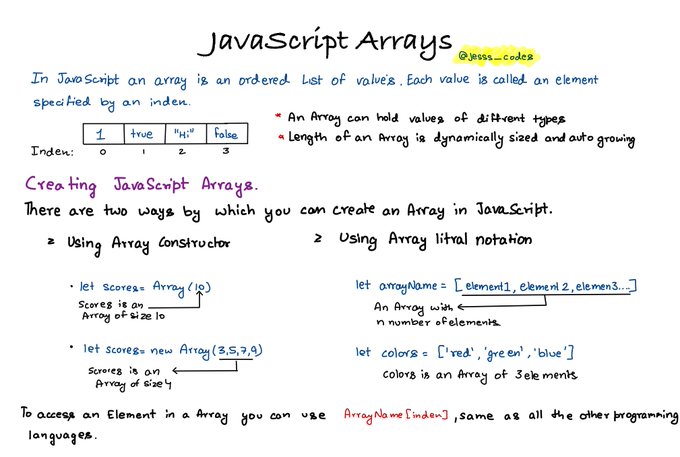 JavaScript Arrays
@jesss_codes
In JavaScript an array is an ordered List of values. Each value is called an element
specified by an inden.
1 true "Hi" false
Inden: 0 1 2 3
* An Array can hold values of different types
* Length of an Array is dynamically sized and auto growing
Creating JavaScript Arrays.
There are two ways by which you can create an Array in JavaScript.
Using Array Constructor
• let scores= Array(10)
Scores is an
Array of size 10
• let scores= new Array(3,5,7,9)
Scrores is an
Array of size 4
2 Using Array litral notation
let arrayName = [element1, element2, elemen3....]
An Array with
n number of elements
let colors = ['red', 'green', 'blue']
colors is an Array of 3 elements
To access an Element in a Array you can use ArrayName[inden], same as all the other programming
languages.